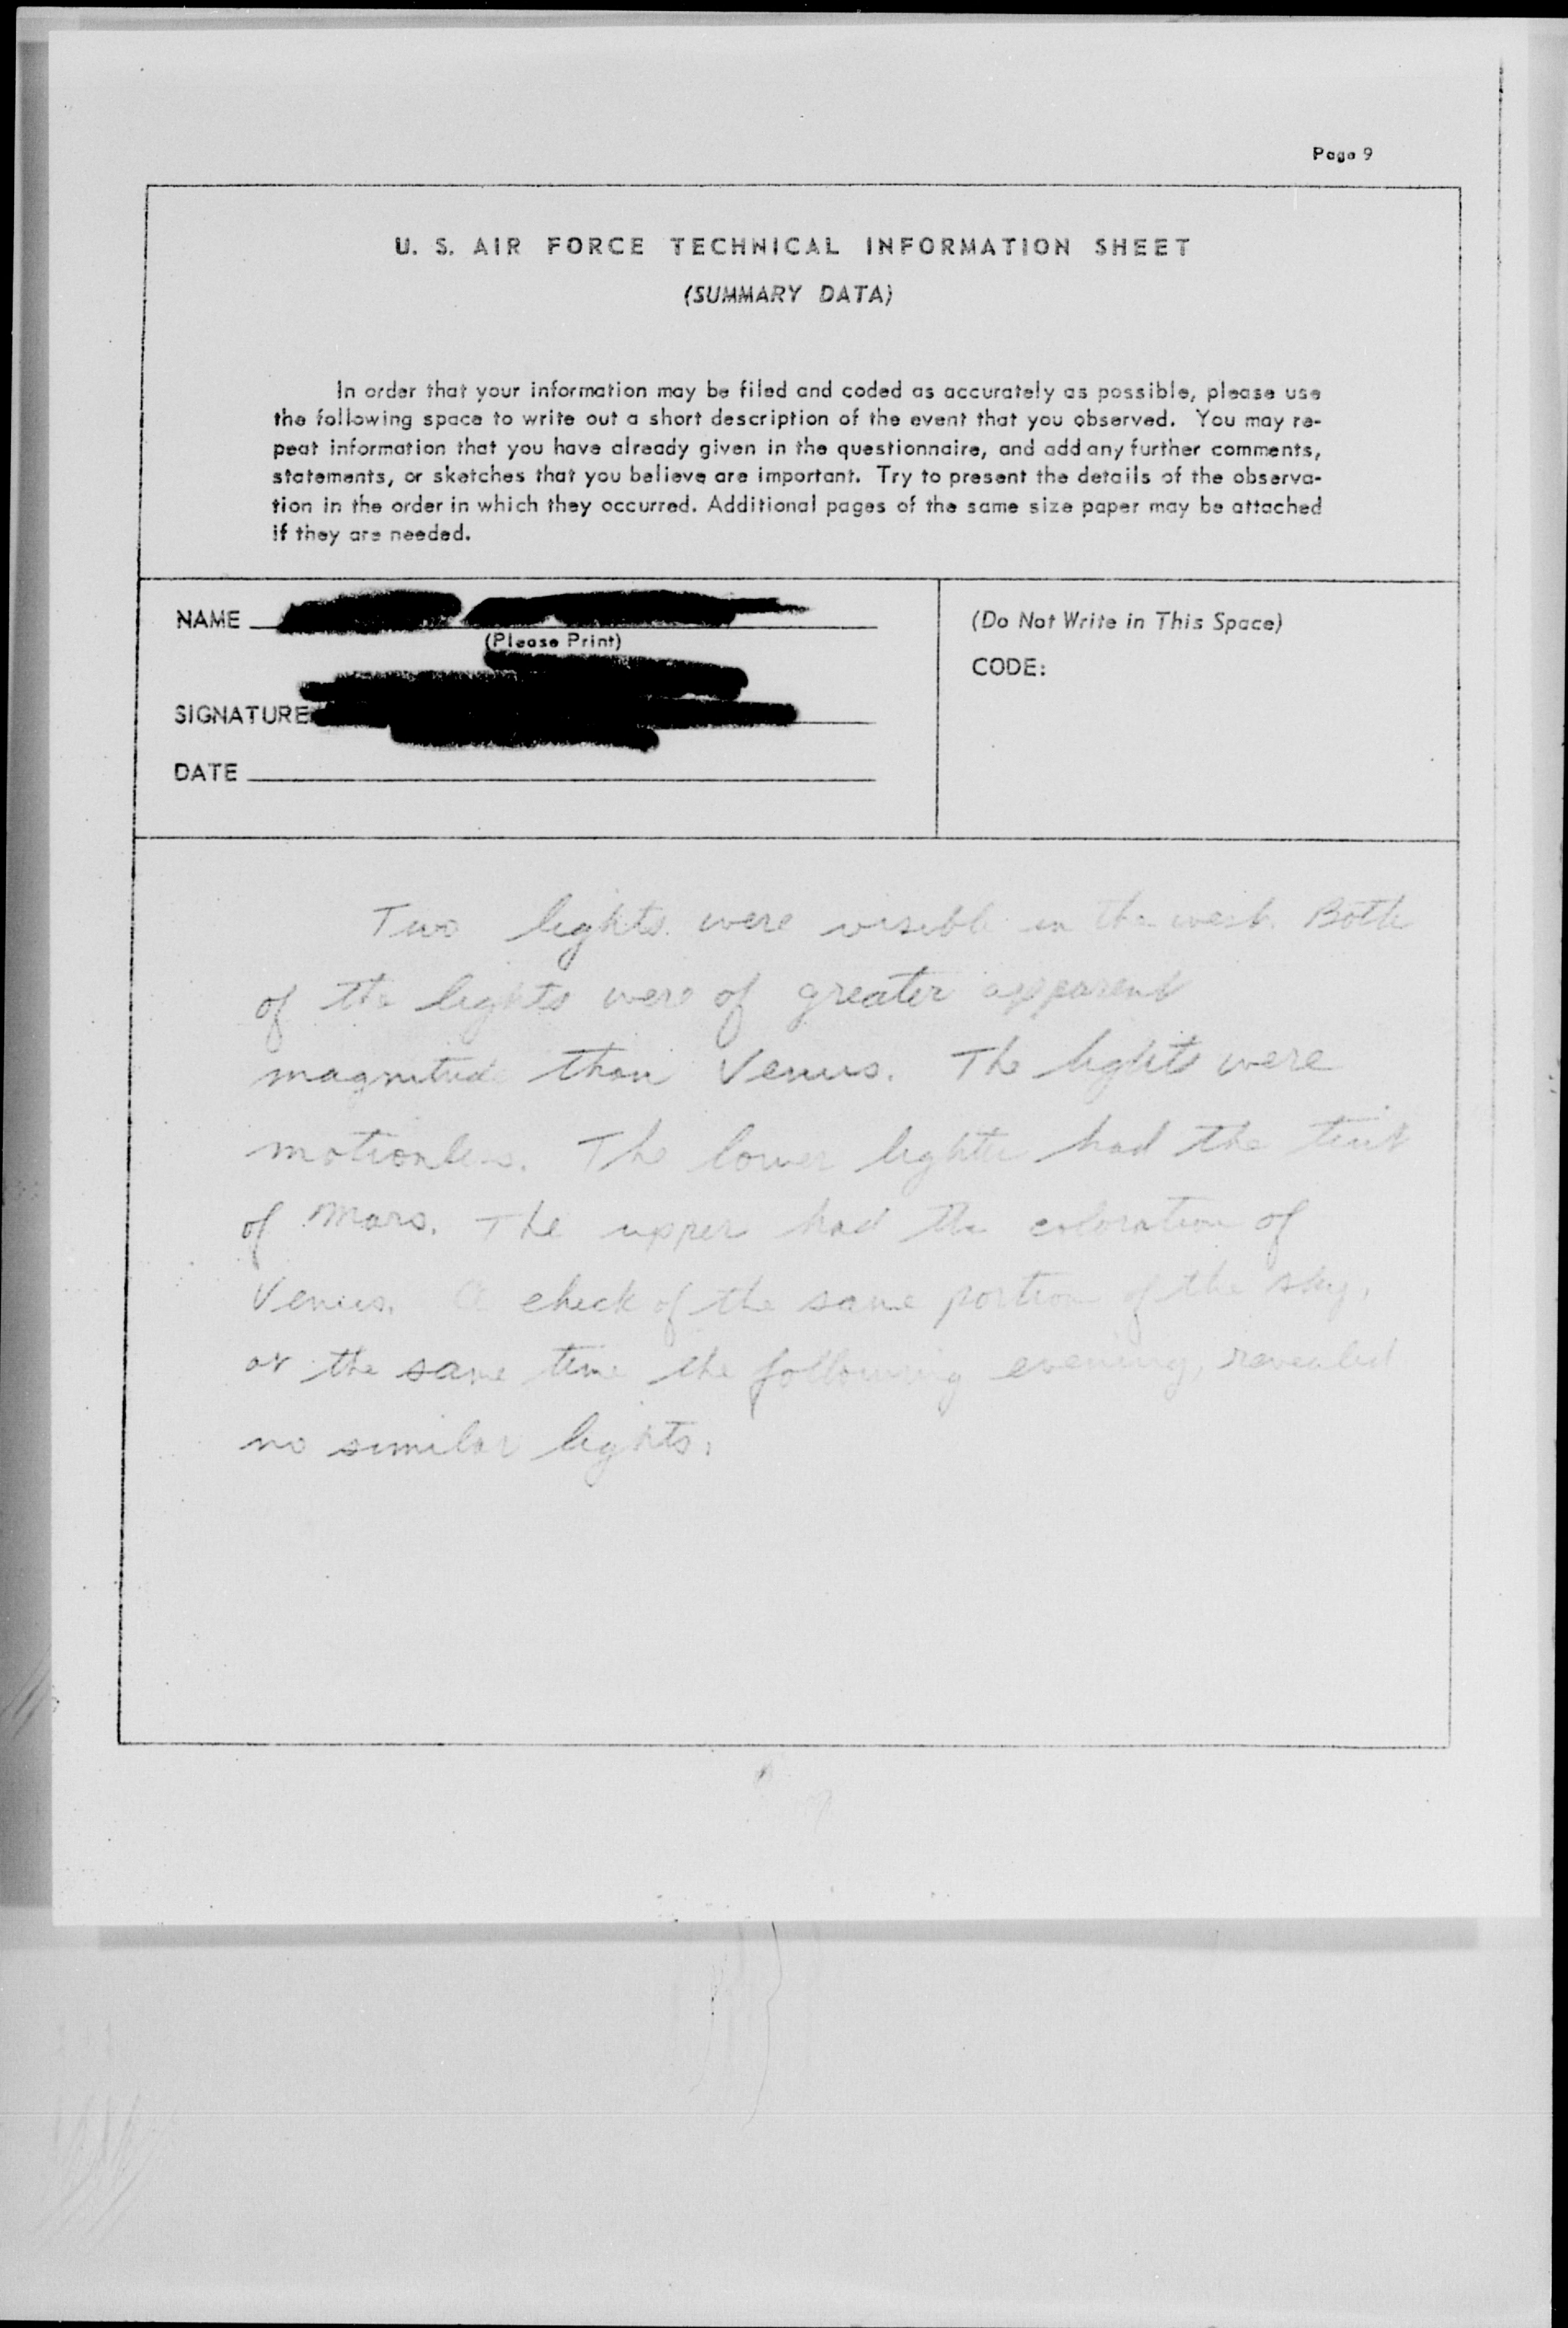 Page 9
U. S. AIR FORCE TECHNICAL INFORMATION SHEET
(SUMMARY DATA)
In order that your information may be filed and coded as accurately as possible, please use
the following space to write out a short description of the event that you observed. You may re-
peat information that you have already given in the questionnaire, and add any further comments,
statements, or sketches that you believe are important. Try to present the details of the observa-
tion in the order in which they occurred. Additional pages of the same size paper may be attached
if they are needed.
NAME
(Please Print)
SIGNATURE
DATE
(Do Not Write in This Space)
CODE:
Two lights were visible in the west. Both
of the lights were of greater apparent
magnitude than Venus. The lights were
motionless. The lower light had the tint
of Mars. The upper had the coloration of
Venus. A check of the same portion of the sky,
at the same time the following evening, revealed
no similar lights.